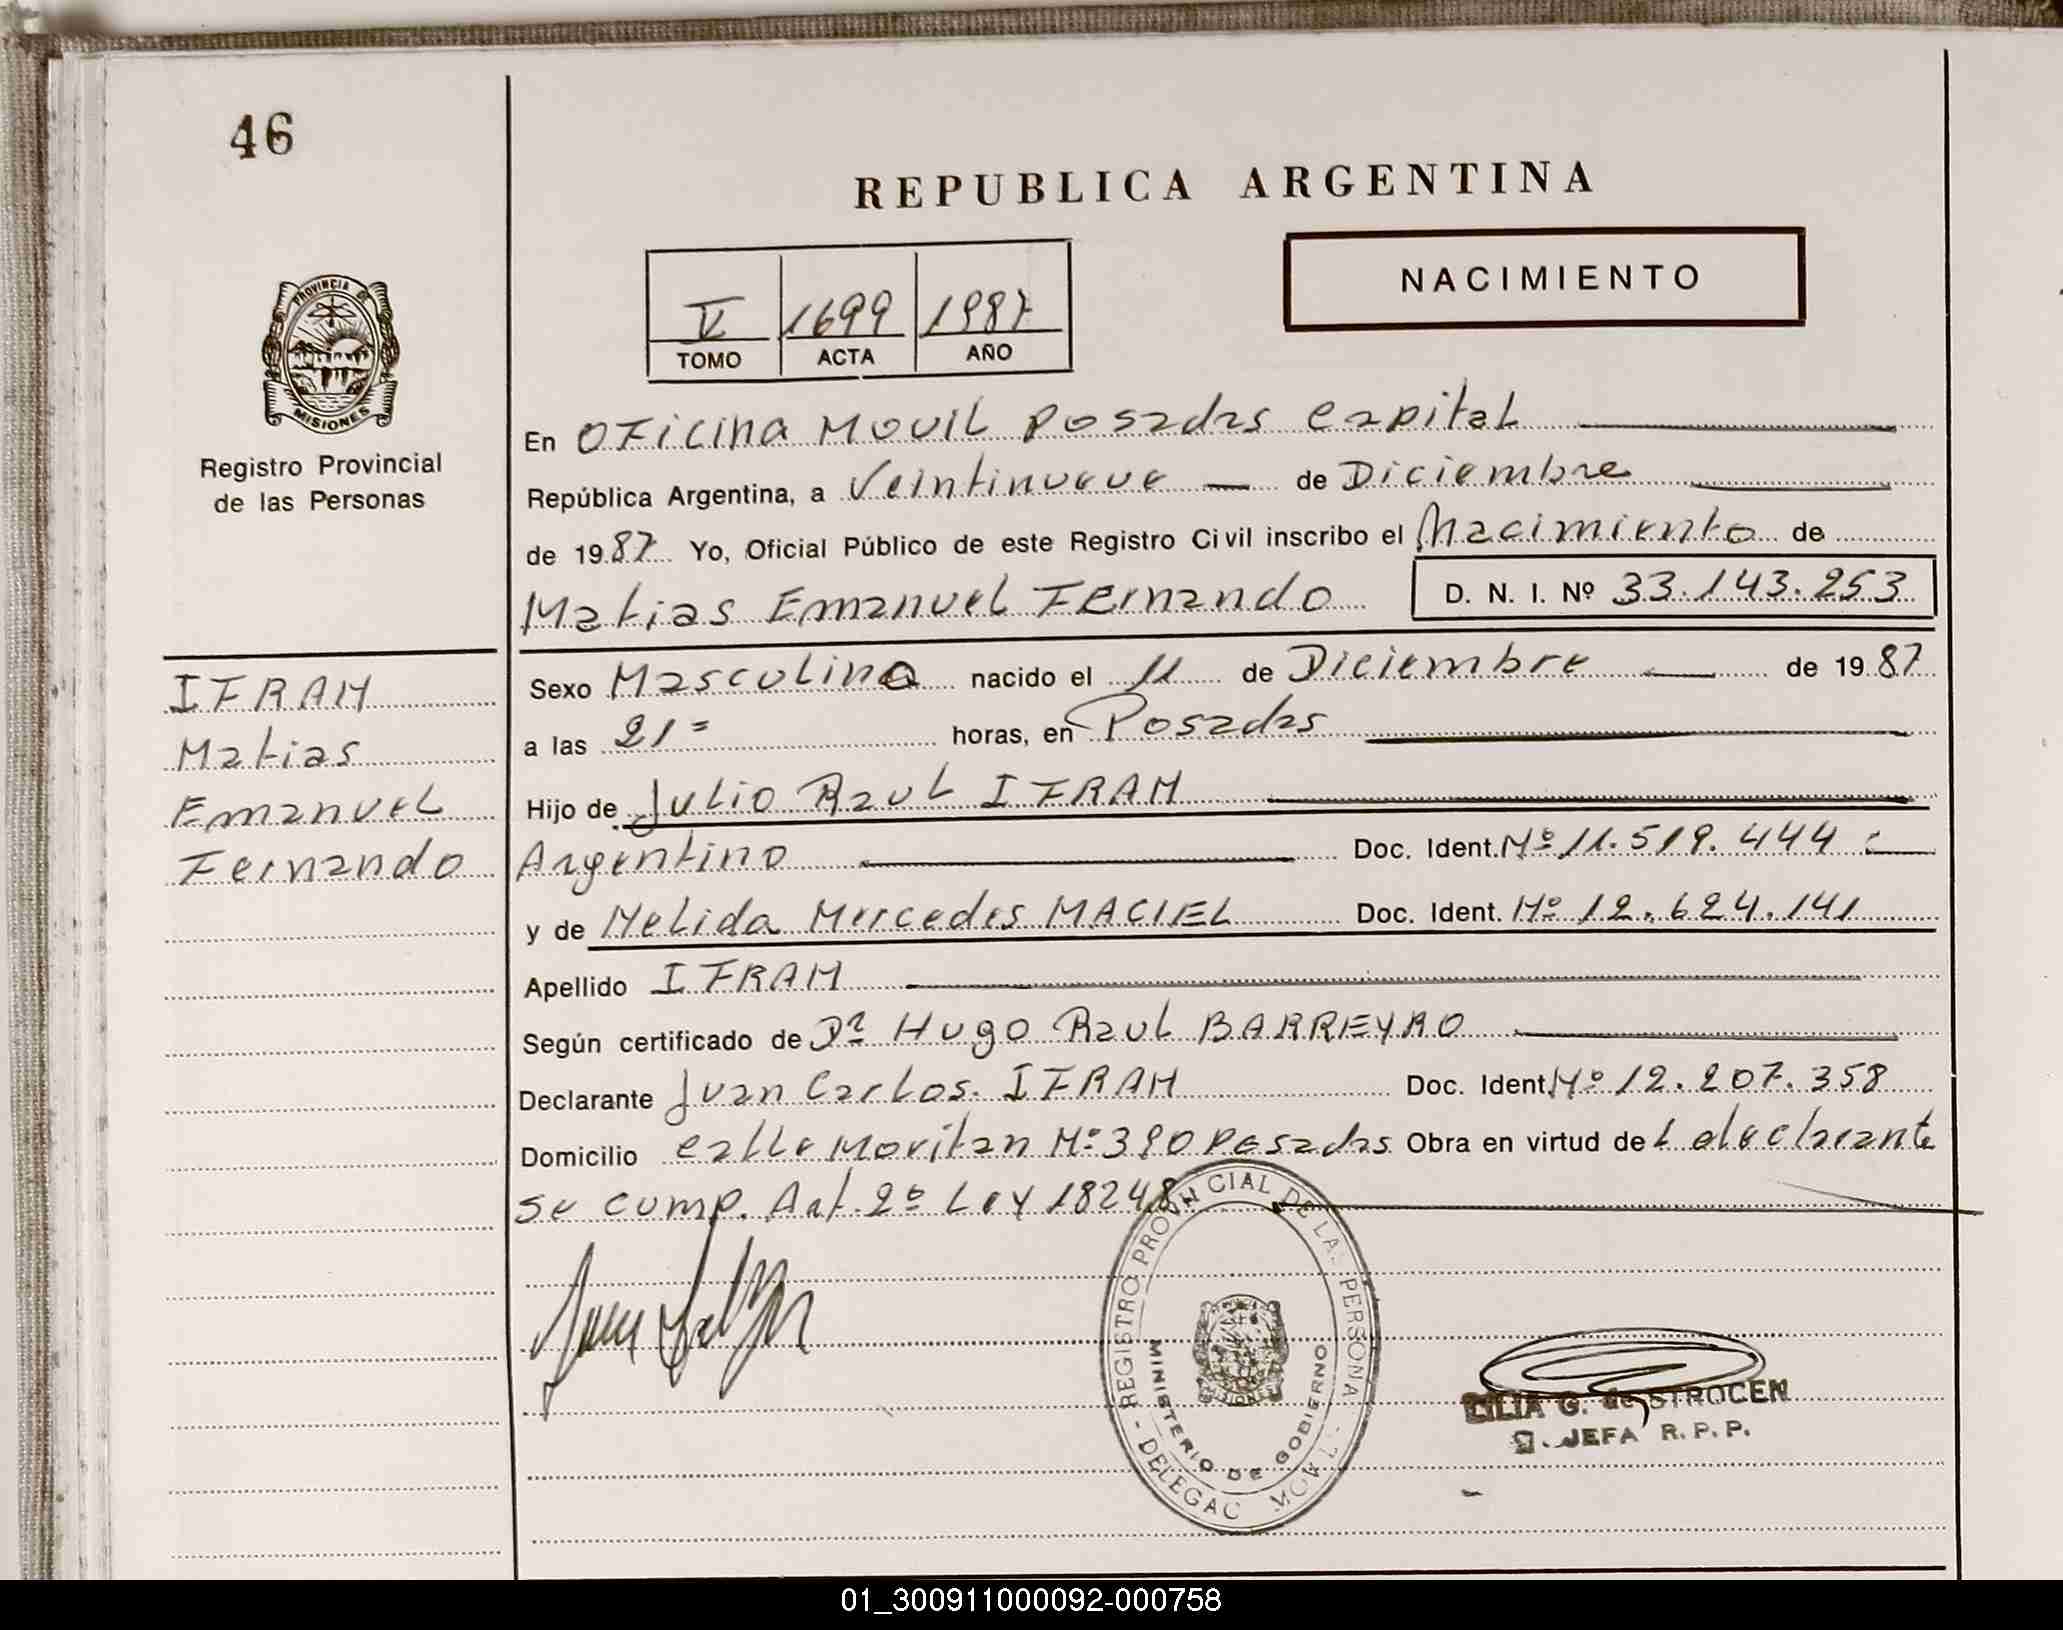 46
REPUBLICA ARGENTINA
NACIMIENTO
V 1699 1987
TOMO ACTA AÑO
PROVINCIA DE
MISIONES
Registro Provincial
de las Personas
En Oficina Movil Posadas Capital
República Argentina, a Veintinueve de Diciembre
de 1987 Yo, Oficial Público de este Registro Civil inscribo el Nacimiento de
Matias Emanuel Fernando D. N. I. Nº 33.143.253
IFRAM
Matias
Emanuel
Fernando
Sexo Masculino nacido el 11 de Diciembre de 1987
a las 21= horas, en Posadas
Hijo de Julio Raul IFRAM
Argentino Doc. Ident. Nº 11.519.444
y de Nelida Mercedes MACIEL Doc. Ident. Nº 12.624.141
Apellido IFRAM
Según certificado de Dr Hugo Raul BARREYRO
Declarante Juan Carlos IFRAM Doc. Ident. Nº 12.207.358
Domicilio calle Moritan Nº 390 Posadas Obra en virtud del declarante
se cump. Art. 2º Ley 18248
REGISTRO PROVINCIAL DE LAS PERSONA
MINISTERIO DE GOBIERNO
DELEGAC MOVIL
LILIA G. de STROCEN
JEFA R.P.P.
01_300911000092-000758